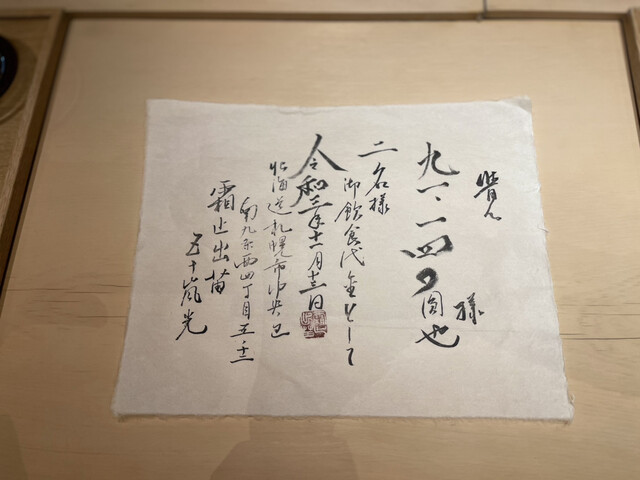 覚え
様
九一、一四〇圓也
二名様
御飲食代金として
令和三年十一月十三日
北海道札幌市中央区
南九条西四丁目五-十二
霜止出苗
五十嵐光